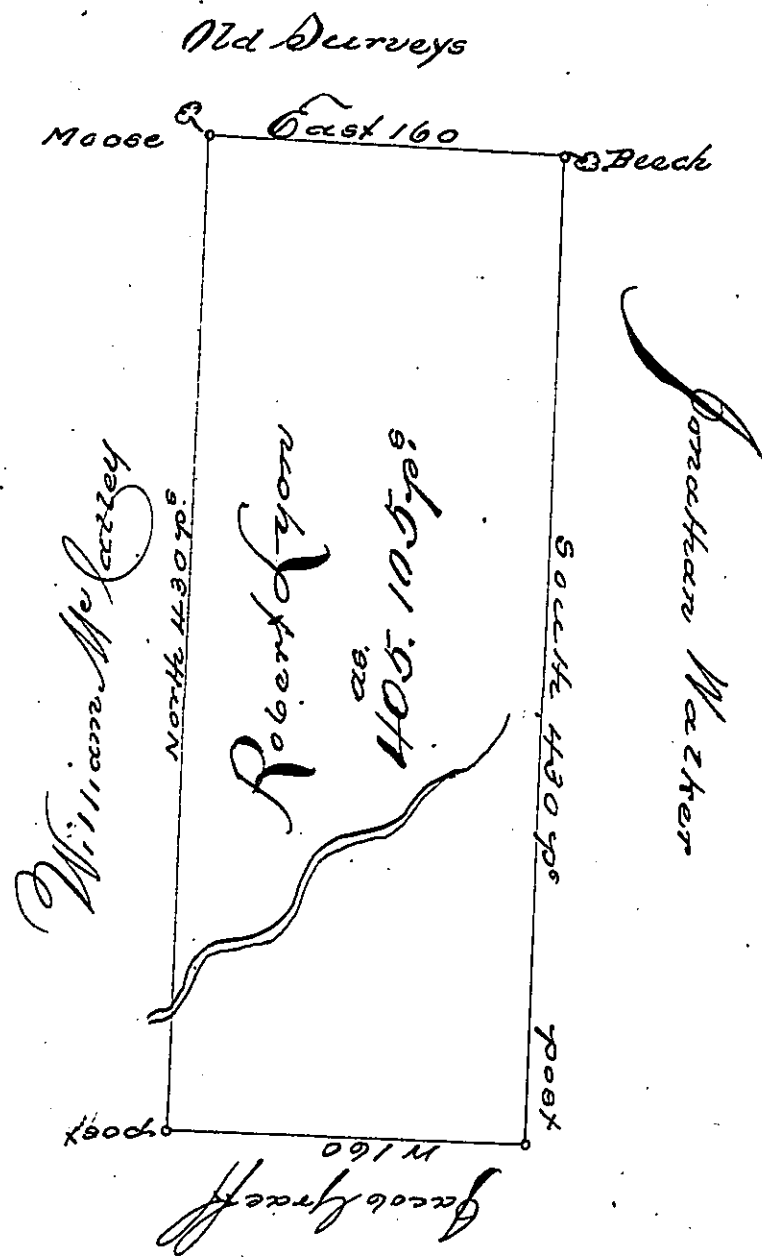 Old Surveys
Moose
East 160
Beech
William McCauley
North 430 ps
Robert Lyon
as
405. 105 ps
South 430 ps
Jonathan Walker
post
post
W 160
Jacob Graeff